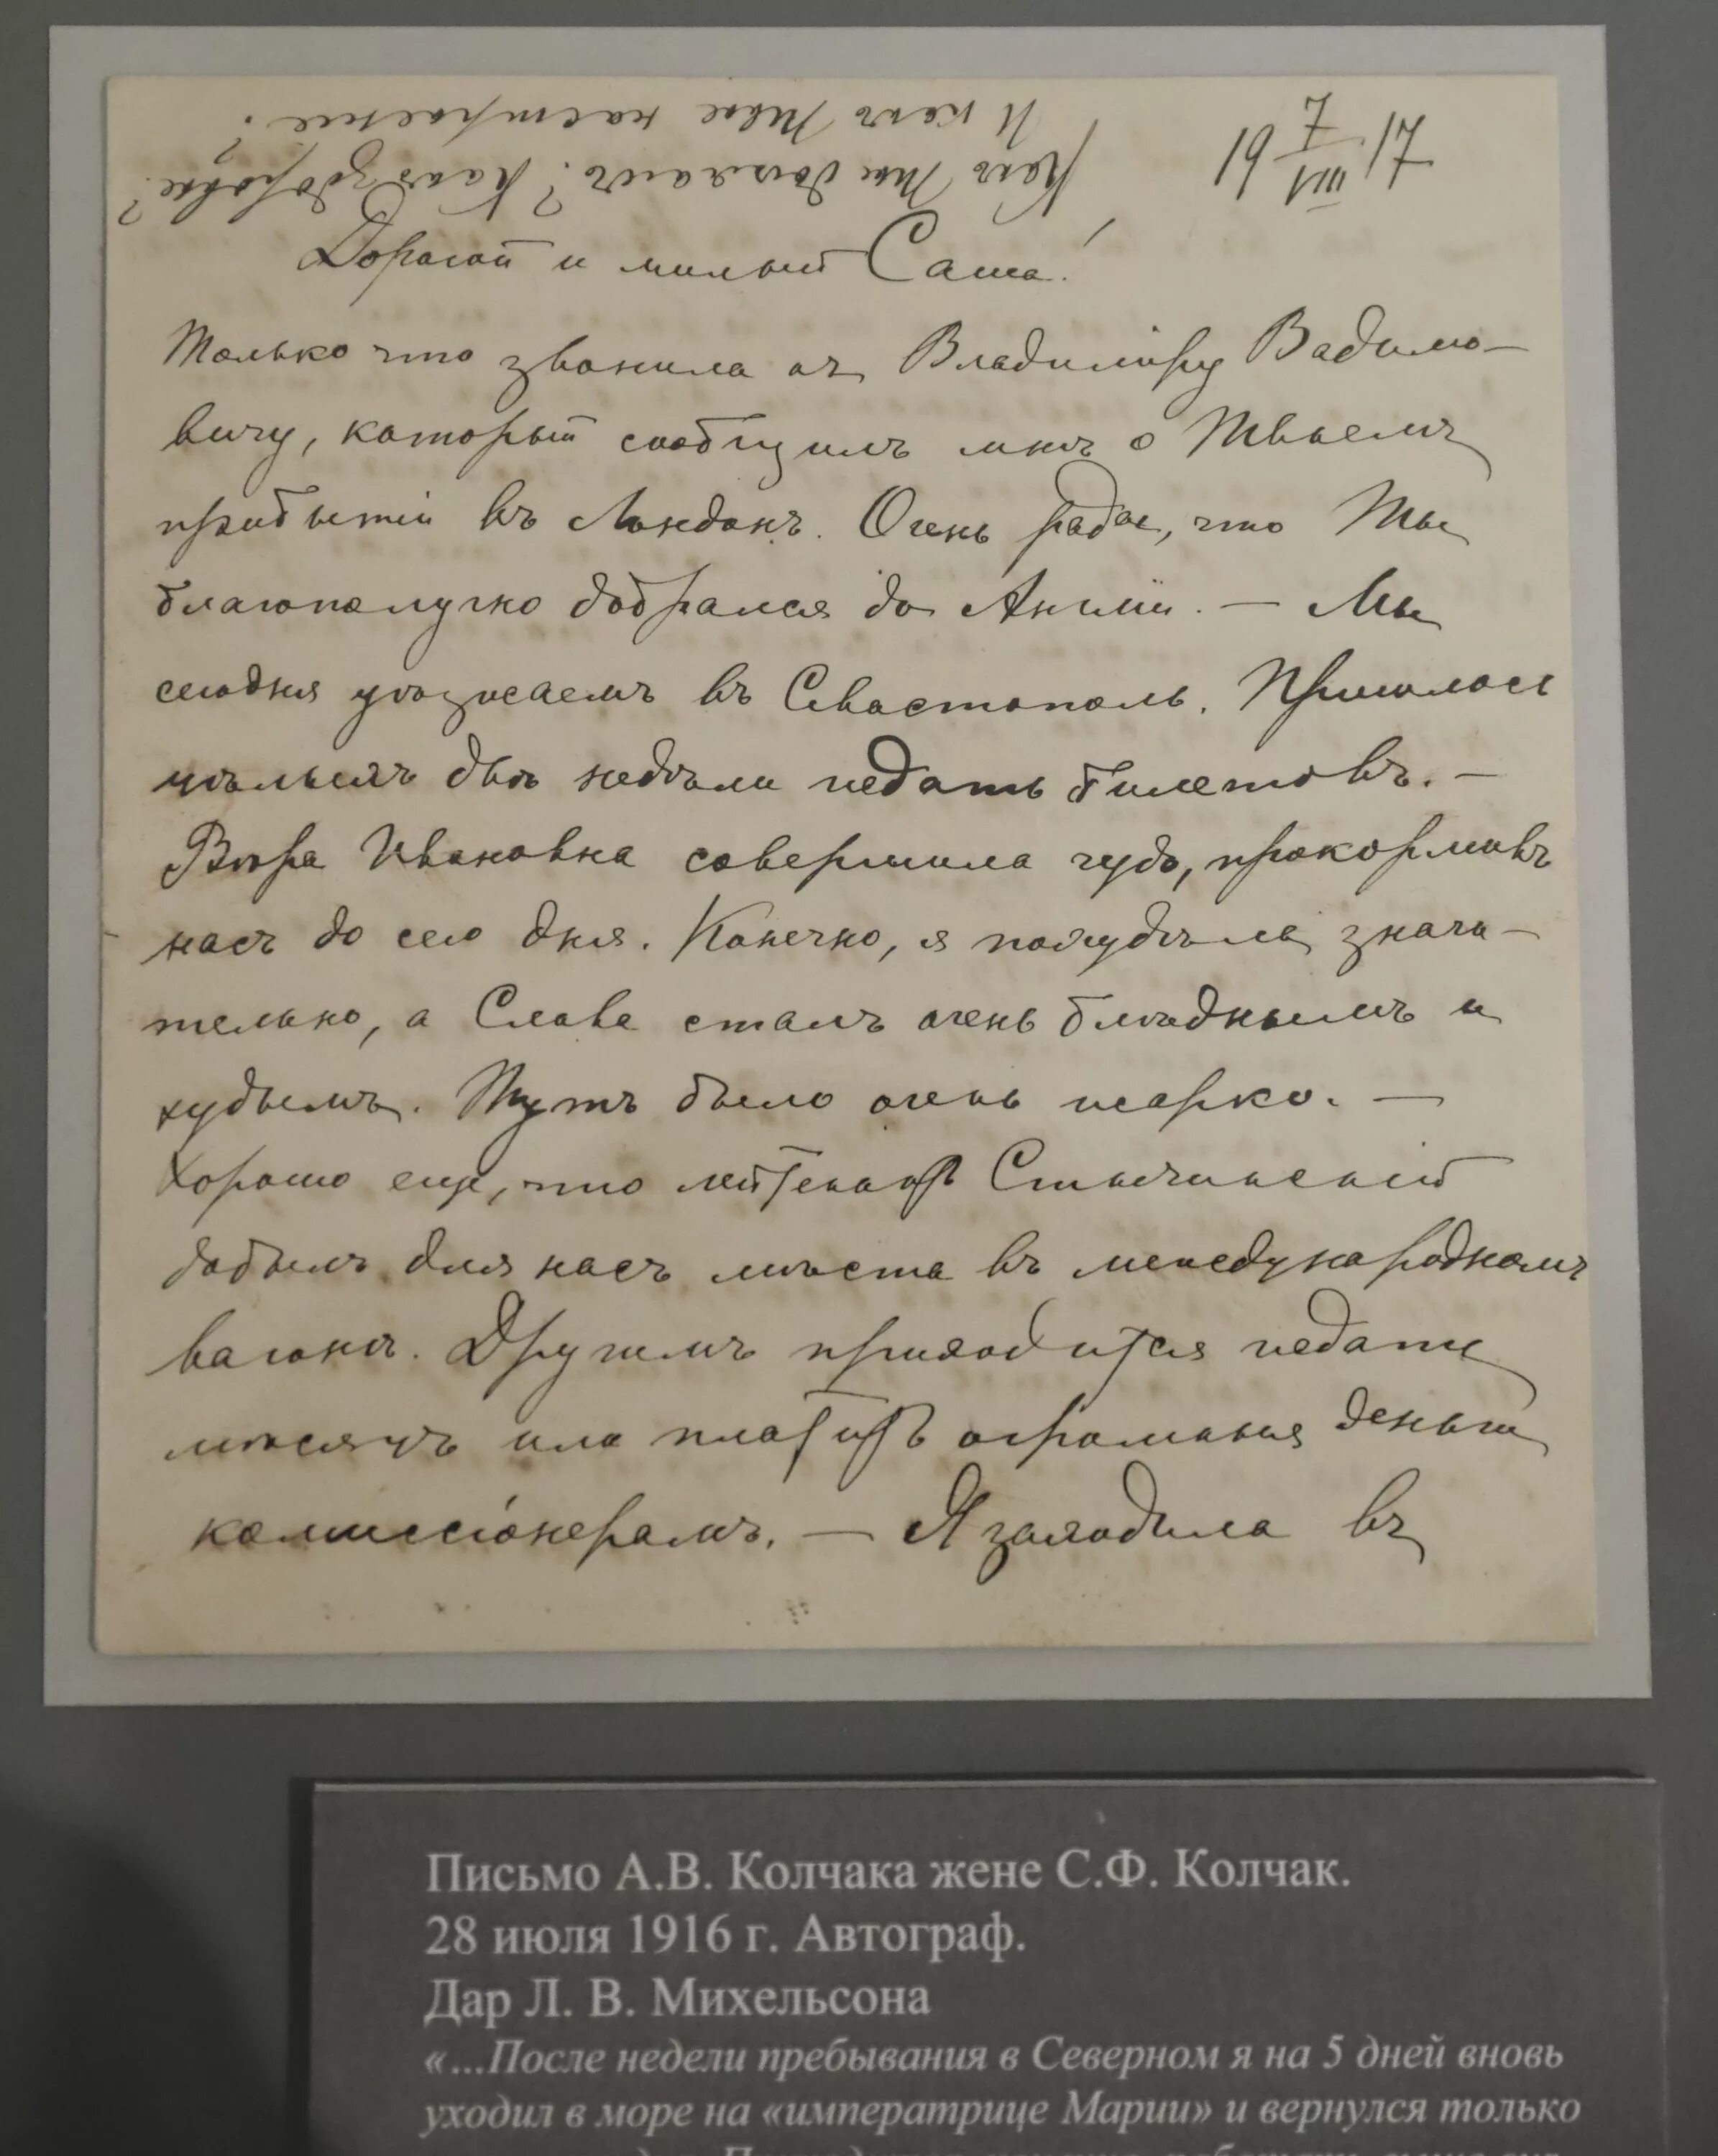 И какъ Твое настроенiе?
Какъ Ты доѣхалъ? Какъ здоровье?
19 7/VIII 17
Дорогой и милый Саша!
Только что звонила къ Владимiру Вадимо-
вичу, который сообщилъ мнѣ о Твоемъ
прибытiи въ Лондонъ. Очень рада, что Ты
благополучно добрался до Англiи. — Мы
сегодня уѣзжаемъ въ Севастополь. Пришлось
цѣлыхъ двѣ недѣли ждать билетовъ. —
Вѣра Ивановна совершила чудо, прокормивъ
насъ до сего дня. Конечно, я похудѣла значи-
тельно, а Слава сталъ очень блѣднымъ и
худымъ. Тутъ было очень жарко. —
Хорошо еще, что лейтенантъ
добылъ для насъ мѣста въ международномъ
вагонѣ. Другимъ приходится ждать
мѣсяцъ или платить огромныя деньги
комиссiонерамъ. — Я заходила въ
Письмо А.В. Колчака жене С.Ф. Колчак.
28 июля 1916 г. Автограф.
Дар Л. В. Михельсона
«...После недели пребывания в Северном я на 5 дней вновь
уходил в море на «императрице Марии» и вернулся только